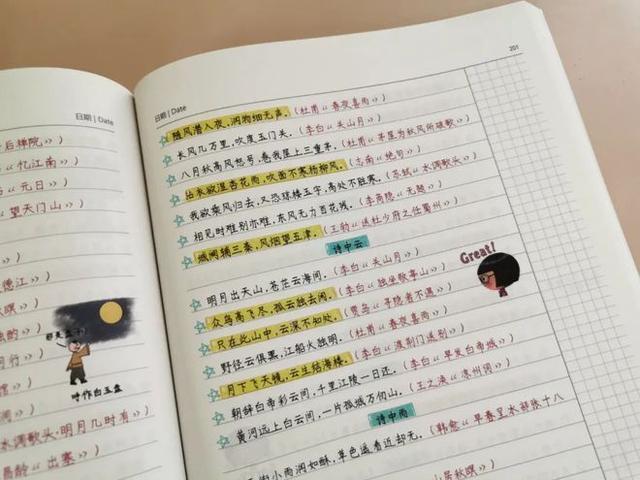 日期 | Date
后禅院》）
《忆江南》）
《元日》）
《望天门山》）
水调歌头·明月几时有》）
《出塞》）
呼作白玉盘
201
日期 | Date
随风潜入夜，润物细无声。（杜甫《春夜喜雨》）
长风几万里，吹度玉门关。（李白《关山月》）
八月秋高风怒号，卷我屋上三重茅。（杜甫《茅屋为秋风所破歌》）
沾衣欲湿杏花雨，吹面不寒杨柳风。（志南《绝句》）
我欲乘风归去，又恐琼楼玉宇，高处不胜寒。（苏轼《水调歌头》）
相见时难别亦难，东风无力百花残。（李商隐《无题》）
城阙辅三秦，风烟望五津。（王勃《送杜少府之任蜀州》）
诗中云
明月出天山，苍茫云海间。（李白《关山月》）
众鸟高飞尽，孤云独去闲。（李白《独坐敬亭山》）
只在此山中，云深不知处。（贾岛《寻隐者不遇》）
野径云俱黑，江船火独明。（杜甫《春夜喜雨》）
月下飞天镜，云生结海楼。（李白《渡荆门送别》）
朝辞白帝彩云间，千里江陵一日还。（李白《早发白帝城》）
黄河远上白云间，一片孤城万仞山。（王之涣《凉州词》）
Great!
诗中雨
街小雨润如酥，草色遥看近却无。（韩愈《早春呈水部张十八